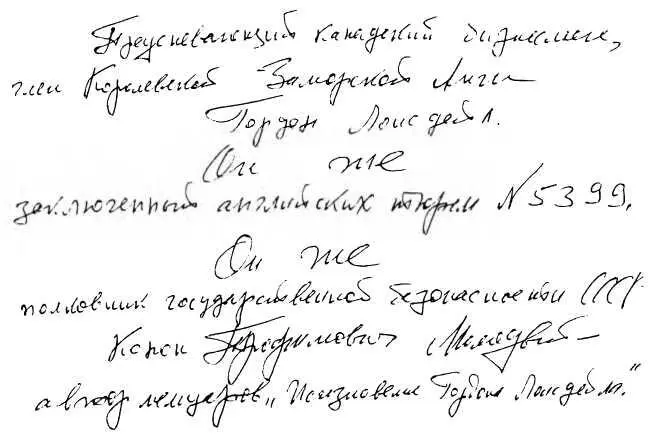 Преуспевающий канадский бизнесмен,
член Королевской Заморской Лиги
Гордон Лонсдейл.
Он же
заключенный английских тюрем N 5399.
Он же
полковник государственной безопасности СССР
Конон Трофимович Молодый –
автор мемуаров „Исчезновение Гордона Лонсдейла."